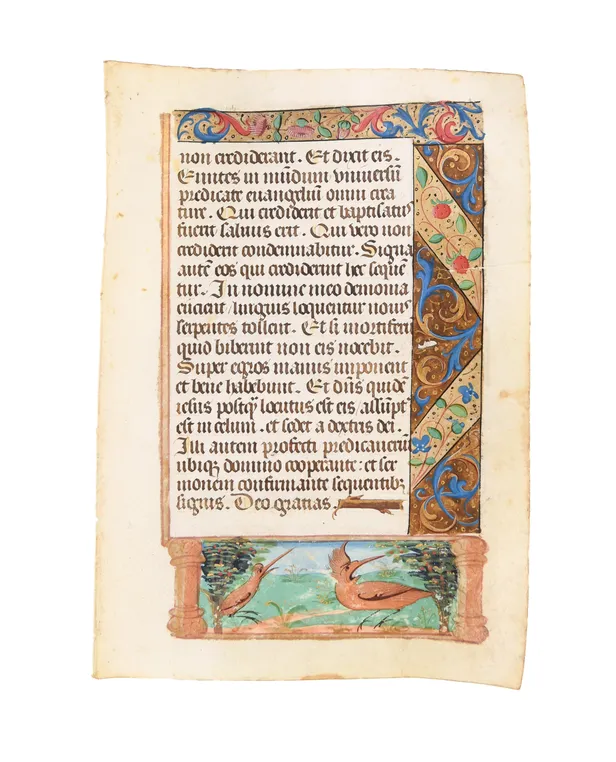 non crediderant. Et dixit eis.
Euntes in mūdum vniversū
predicate euangeliū omni crea
ture. Qui crediderit et baptisatus
fuerit saluus erit. Qui vero non
crediderit condemnabitur. Signa
autē eos qui crediderint hec sequē
tur. In nomine meo demonia
eicient / linguis loquentur nouis
serpentes tollent. Et si mortiferū
quid biberint non eis nocebit.
Super egros manus imponent
et bene habebunt. Et dn̄s quidē
iesus postq̄ʒ locutus est eis / assūpt
est in celum . et sedet a dextris dei.
Illi autem profecti predicauerūt
ubiqʒ domino cooperante : et ser
monem confirmante sequentibʒ
signis. Deo gratias.